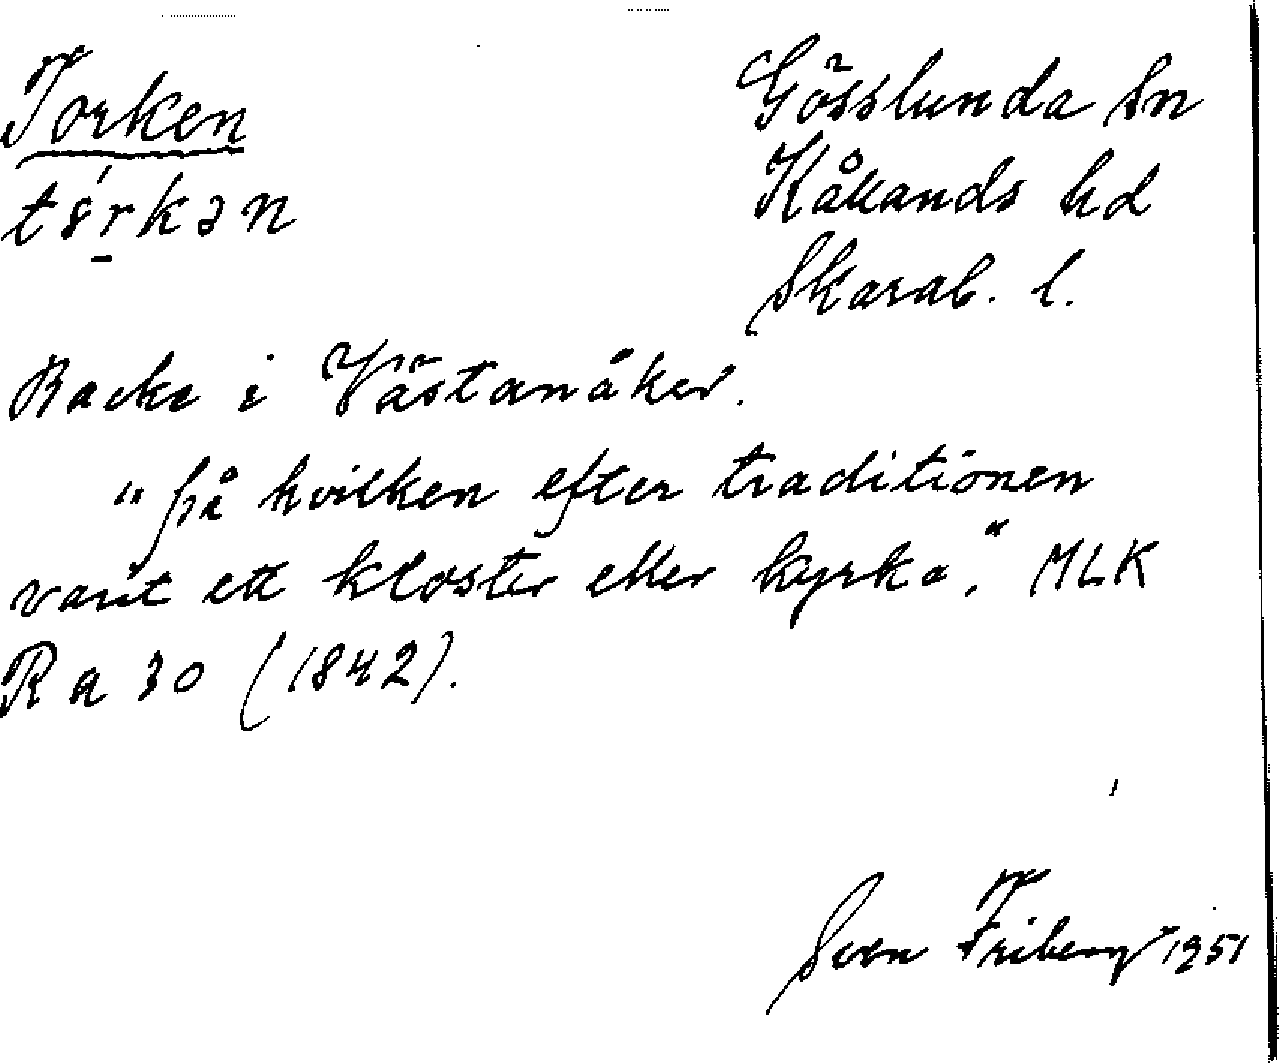 Torken
Gösslunda Sn
Kåkands hd
Skarab. l.
Backe i Västanåker.
"på hvilken efter traditionen
varit ett kloster eller kyrka." MLK
Ra 30 (1842).
Sven Friberg 1951